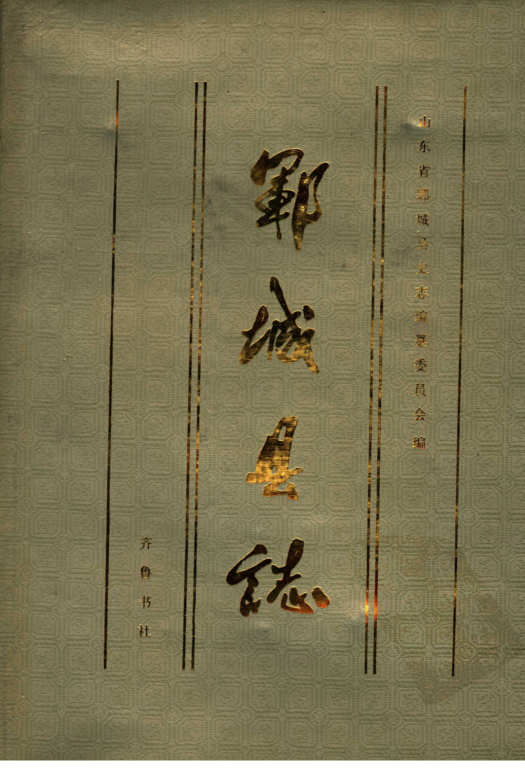 山东省郓城县史志编纂委员会编
鄆城县誌
齐鲁书社